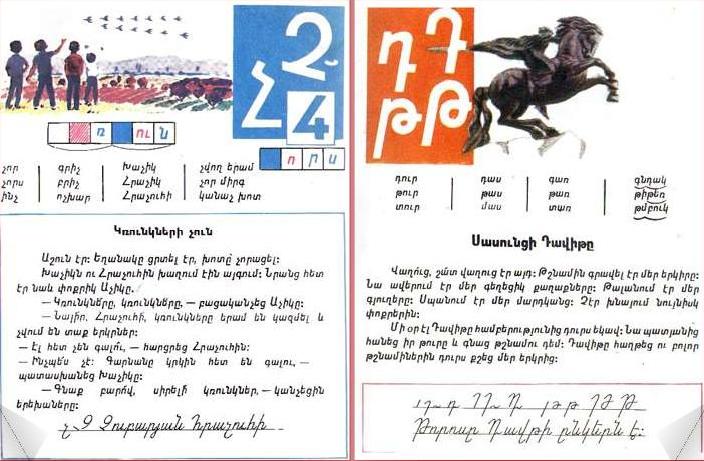 Չ
Հ 4
ռ ու ն
ո ր ս
չոր գրիչ Խաչիկ չվող երամ
չորս բրիչ Հրաչիկ չոր միրգ
ինչ ոչխար Հրաչուհի կանաչ խոտ
Կռունկների չուն
Աշուն էր։ Եղանակը ցրտել էր, խոտը չորացել։
Խաչիկն ու Հրաչուհին խաղում էին այգում։ Նրանց հետ
էր նաև փոքրիկ Աչիկը։
— Կռունկնե՛րը, կռունկնե՛րը, — բացականչեց Աչիկը։
— Նայի՛ր, Հրաչուհի, կռունկները երամ են կազմել և
չվում են տաք երկրներ։
— Էլ հետ չեն գալո՞ւ, — հարցրեց Հրաչուհին։
— Ինչպե՞ս չէ։ Գարնանը կրկին հետ են գալու, —
պատասխանեց Խաչիկը։
— Գնաք բարո՛վ, սիրելի՛ կռունկներ, — կանչեցին
երեխաները։
չ Չ Չուբարյան Հրաչուհի
դ Դ
թ Թ
դուր դաս գառ գնդակ
թուր թաս թառ թիթեռ
տուր մաս տառ թմբուկ
Սասունցի Դավիթը
Վաղուց, շատ վաղուց էր այդ։ Թշնամին գրավել էր մեր երկիրը։
Նա ավերում էր մեր գեղեցիկ քաղաքները։ Թալանում էր մեր
գյուղերը։ Սպանում էր մեր մարդկանց։ Չէր խնայում նույնիսկ
փոքրերին։
Մի օր էլ Դավիթը համբերությունից դուրս եկավ։ Նա պատյանից
հանեց իր թուրը և գնաց թշնամու դեմ։ Դավիթը հաղթեց ու բոլոր
թշնամիներին դուրս քշեց մեր երկրից։
դ Դ թ Թ
Թորոսը Դավթի ընկերն է։